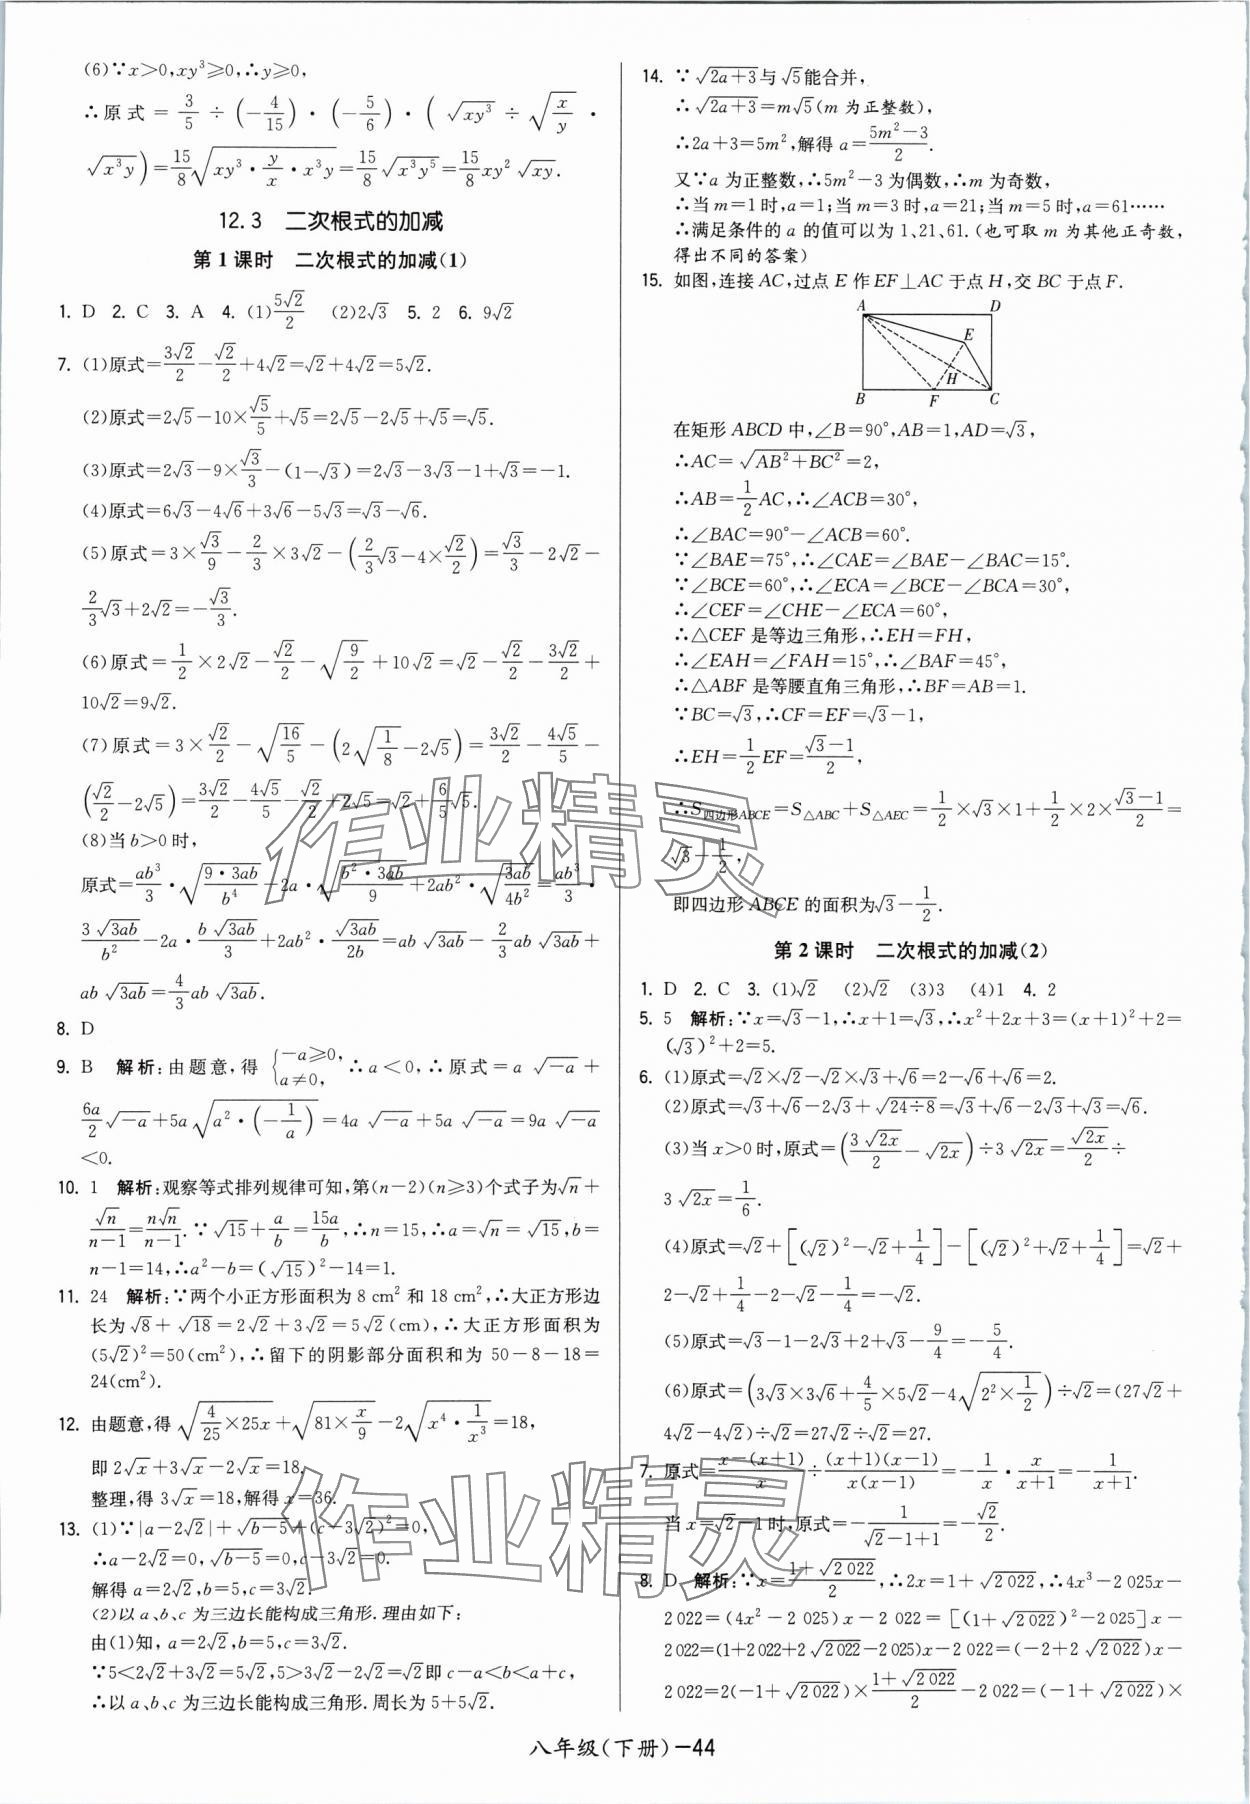 (6)∵x>0,xy³≥0,∴y≥0,
∴原式=3/5÷(-4/15)·(-5/6)·(√(xy³)÷√(x/y)·
√(x³y))=15/8√(xy³·y/x·x³y)=15/8√(x³y⁵)=15/8xy²√(xy).
12.3 二次根式的加减
第1课时 二次根式的加减(1)
1. D 2. C 3. A 4. (1)5√2/2 (2)2√3 5. 2 6. 9√2
7. (1)原式=3√2/2-√2/2+4√2=√2+4√2=5√2.
(2)原式=2√5-10×√5/5+√5=2√5-2√5+√5=√5.
(3)原式=2√3-9×√3/3-(1-√3)=2√3-3√3-1+√3=-1.
(4)原式=6√3-4√6+3√6-5√3=√3-√6.
(5)原式=3×√3/9-2/3×3√2-(2/3√3-4×√2/2)=√3/3-2√2-
2/3√3+2√2=-√3/3.
(6)原式=1/2×2√2-√2/2-√(9/2)+10√2=√2-√2/2-3√2/2+
10√2=9√2.
(7)原式=3×√2/2-√(16/5)-(2√(1/8)-2√5)=3√2/2-4√5/5-
(√2/2-2√5)=3√2/2-4√5/5-√2/2+2√5=√2+6/5√5.
(8)当b>0时,
原式=ab³/3·√(9·3ab/b⁴)-2a·√(b²·3ab/9)+2ab²·√(3ab/4b²)=ab³/3·
3√(3ab)/b²-2a·b√(3ab)/3+2ab²·√(3ab)/2b=ab√(3ab)-2/3ab√(3ab)+
ab√(3ab)=4/3ab√(3ab).
8. D
9. B 解析:由题意,得{-a≥0,a≠0,∴a<0,∴原式=a√(-a)+
6a/2√(-a)+5a√(a²·(-1/a))=4a√(-a)+5a√(-a)=9a√(-a)
<0.
10. 1 解析:观察等式排列规律可知,第(n-2)(n≥3)个式子为√n+
√n/(n-1)=n√n/(n-1).∵√15+a/b=15a/b,∴n=15,∴a=√n=√15,b=
n-1=14,∴a²-b=(√15)²-14=1.
11. 24 解析:∵两个小正方形面积为8 cm²和18 cm²,∴大正方形边
长为√8+√18=2√2+3√2=5√2(cm),∴大正方形面积为
(5√2)²=50(cm²),∴留下的阴影部分面积和为50-8-18=
24(cm²).
12. 由题意,得√(4/25×25x)+√(81×x/9)-2√(x⁴·1/x³)=18,
即2√x+3√x-2√x=18,
整理,得3√x=18,解得x=36.
13. (1)∵|a-2√2|+√(b-5)+(c-3√2)²=0,
∴a-2√2=0,√(b-5)=0,c-3√2=0.
解得a=2√2,b=5,c=3√2.
(2)以a、b、c为三边长能构成三角形.理由如下:
由(1)知,a=2√2,b=5,c=3√2.
∵5<2√2+3√2=5√2,5>3√2-2√2=√2即c-a<b<a+c,
∴以a、b、c为三边长能构成三角形.周长为5+5√2.
14. ∵√(2a+3)与√5能合并,
∴√(2a+3)=m√5(m为正整数),
∴2a+3=5m²,解得a=(5m²-3)/2.
又∵a为正整数,∴5m²-3为偶数,∴m为奇数,
∴当m=1时,a=1;当m=3时,a=21;当m=5时,a=61……
∴满足条件的a的值可以为1、21、61.(也可取m为其他正奇数,
得出不同的答案)
15. 如图,连接AC,过点E作EF⊥AC于点H,交BC于点F.
A D
E
H
B F C
在矩形ABCD中,∠B=90°,AB=1,AD=√3,
∴AC=√(AB²+BC²)=2,
∴AB=1/2AC,∴∠ACB=30°,
∴∠BAC=90°-∠ACB=60°.
∵∠BAE=75°,∴∠CAE=∠BAE-∠BAC=15°.
∵∠BCE=60°,∴∠ECA=∠BCE-∠BCA=30°,
∴∠CEF=∠CHE-∠ECA=60°,
∴△CEF是等边三角形,∴EH=FH,
∴∠EAH=∠FAH=15°,∴∠BAF=45°,
∴△ABF是等腰直角三角形,∴BF=AB=1.
∵BC=√3,∴CF=EF=√3-1,
∴EH=1/2EF=(√3-1)/2,
∴S四边形ABCE=S△ABC+S△AEC=1/2×√3×1+1/2×2×(√3-1)/2=
√3-1/2,
即四边形ABCE的面积为√3-1/2.
第2课时 二次根式的加减(2)
1. D 2. C 3. (1)√2 (2)√2 (3)3 (4)1 4. 2
5. 5 解析:∵x=√3-1,∴x+1=√3,∴x²+2x+3=(x+1)²+2=
(√3)²+2=5.
6. (1)原式=√2×√2-√2×√3+√6=2-√6+√6=2.
(2)原式=√3+√6-2√3+√(24÷8)=√3+√6-2√3+√3=√6.
(3)当x>0时,原式=(3√(2x)/2-√(2x))÷3√(2x)=√(2x)/2÷
3√(2x)=1/6.
(4)原式=√2+[(√2)²-√2+1/4]-[(√2)²+√2+1/4]=√2+
2-√2+1/4-2-√2-1/4=-√2.
(5)原式=√3-1-2√3+2+√3-9/4=-5/4.
(6)原式=(3√3×3√6+4/5×5√2-4√(2²×1/2))÷√2=(27√2+
4√2-4√2)÷√2=27√2÷√2=27.
7. 原式=(x-(x+1))/x÷(x+1)(x-1)/(x(x-1))=-1/x·x/(x+1)=-1/(x+1).
当x=√2-1时,原式=-1/(√2-1+1)=-√2/2.
8. D 解析:∵x=(1+√2 022)/2,∴2x=1+√2 022,∴4x³-2 025x-
2 022=(4x²-2 025)x-2 022=[(1+√2 022)²-2 025]x-
2 022=(1+2 022+2√2 022-2 025)x-2 022=(-2+2√2 022)x-
2 022=2(-1+√2 022)×(1+√2 022)/2-2 022=(-1+√2 022)×
八年级(下册)-44
作业精灵
作业精灵